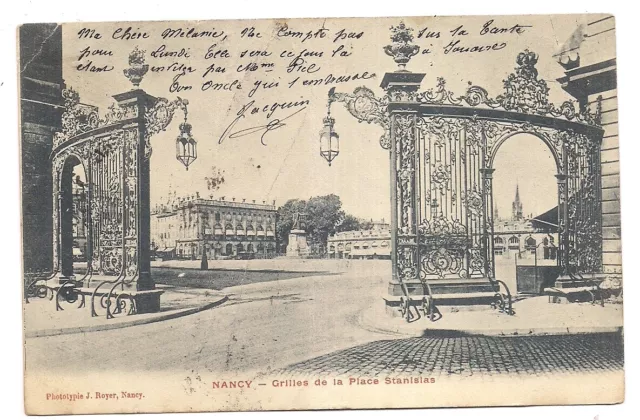 Ma chère Mélanie, Ne Compte pas sur la Tante
pour Lundi Elle sera ce jour là à
étant invitée par Mme
Ton Oncle qui t'embrasse
Jacquin
NANCY — Grilles de la Place Stanislas
Phototypie J. Royer, Nancy.